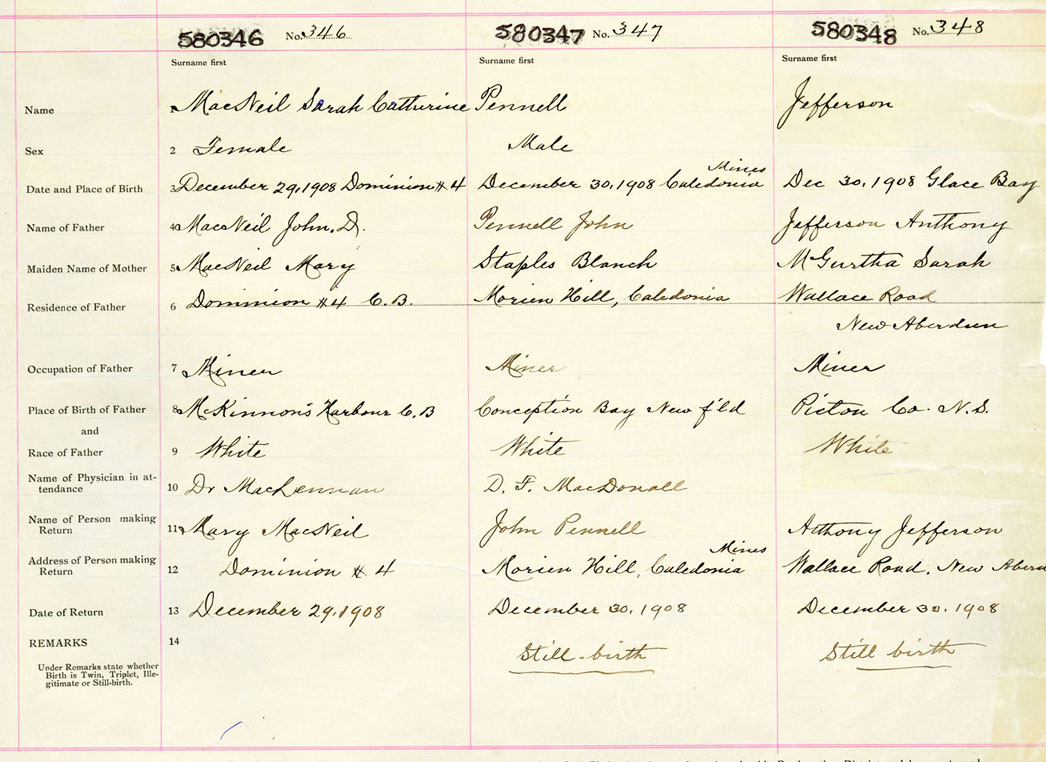 580346 No. 346 580347 No. 347 580348 No. 348
Surname first Surname first Surname first
Name MacNeil Sarah Catherine Pennell Jefferson
Sex 2 Female Male
Mines
Date and Place of Birth 3 December 29, 1908 Dominion # 4 December 30, 1908 Caledonia Dec 30, 1908 Glace Bay
Name of Father 4 MacNeil John. D. Pennell John Jefferson Anthony
Maiden Name of Mother 5 MacNeil Mary Staples Blanch McGurtha Sarah
Residence of Father 6 Dominion #4 C.B. Morien Hill, Caledonia Wallace Road
New Aberdeen
Occupation of Father 7 Miner Miner Miner
Place of Birth of Father 8 McKinnon's Harbour C.B Conception Bay Newf'ld Pictou Co. N.S.
and
Race of Father 9 White White White
Name of Physician in at-
tendance 10 Dr MacLennan D. F. MacDonall
Name of Person making
Return 11 Mary MacNeil John Pennell Anthony Jefferson
Mines
Address of Person making
Return 12 Dominion # 4 Morien Hill, Caledonia Wallace Road, New Aberd
Date of Return 13 December 29, 1908 December 30, 1908 December 30, 1908
REMARKS 14 Still-birth Still birth
Under Remarks state whether
Birth is Twin, Triplet, Ille-
gitimate or Still-birth.